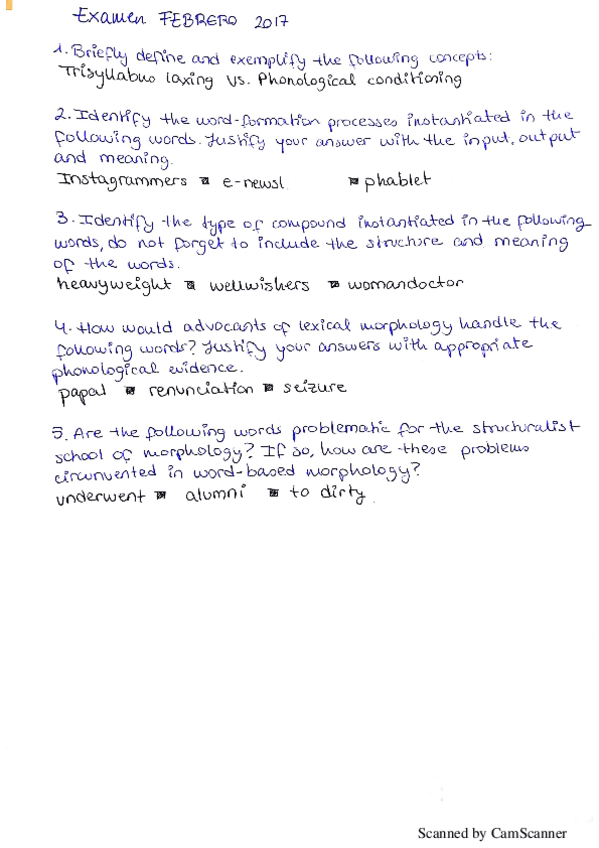 Examen FEBRERO 2017
1. Briefly define and exemplify the following concepts:
Trisyllabuo laxing vs. Phonological conditioning
2. Identify the word-formation processes instantiated in the
following words. Justify your answer with the input, output
and meaning.
Instagrammers e-newsl phablet
3. Identify the type of compound instantiated in the following
words, do not forget to include the structure and meaning
of the words.
heavyweight wellwishers womandoctor
4. How would advocants of lexical morphology handle the
following words? Justify your answers with appropriate
phonological evidence.
papal renunciation seizure
5. Are the following words problematic for the structuralist
school of morphology? If so, how are these problems
circunvented in word-based morphology?
underwent alumni to dirty.
Scanned by CamScanner